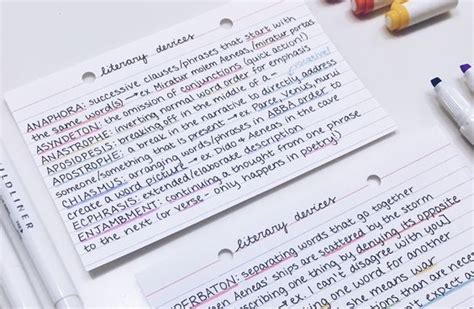 literary devices
ANAPHORA: successive clauses/phrases that start with
the same word(s) → ex Miratur molem Aeneas, /miratur portas
ASYNDETON: the omission of conjunctions (quick action!)
ANASTROPHE: inverting normal word order for emphasis
APOSIOPESIS: breaking off in the middle of a –
APOSTROPHE: a break in the narrative to directly address (vocative!)
someone/something that is present → ex Parce, Venus,
CHIASMUS: arranging words/phrases in ABBA order to
create a word picture → ex Dido & Aeneas in the cave
ECPHRASIS: extended/elaborate description
ENJAMBMENT: continuing a thought from one phrase
to the next (or verse - only happens in poetry!)
literary devices
ERBATON: separating words that go together
Aeneas' ships are scattered by the storm
scribing one thing by denying its opposite
→ ex. I can't disagree with you]
one word for another
she means war
tions that are
't expect
WILDLINER